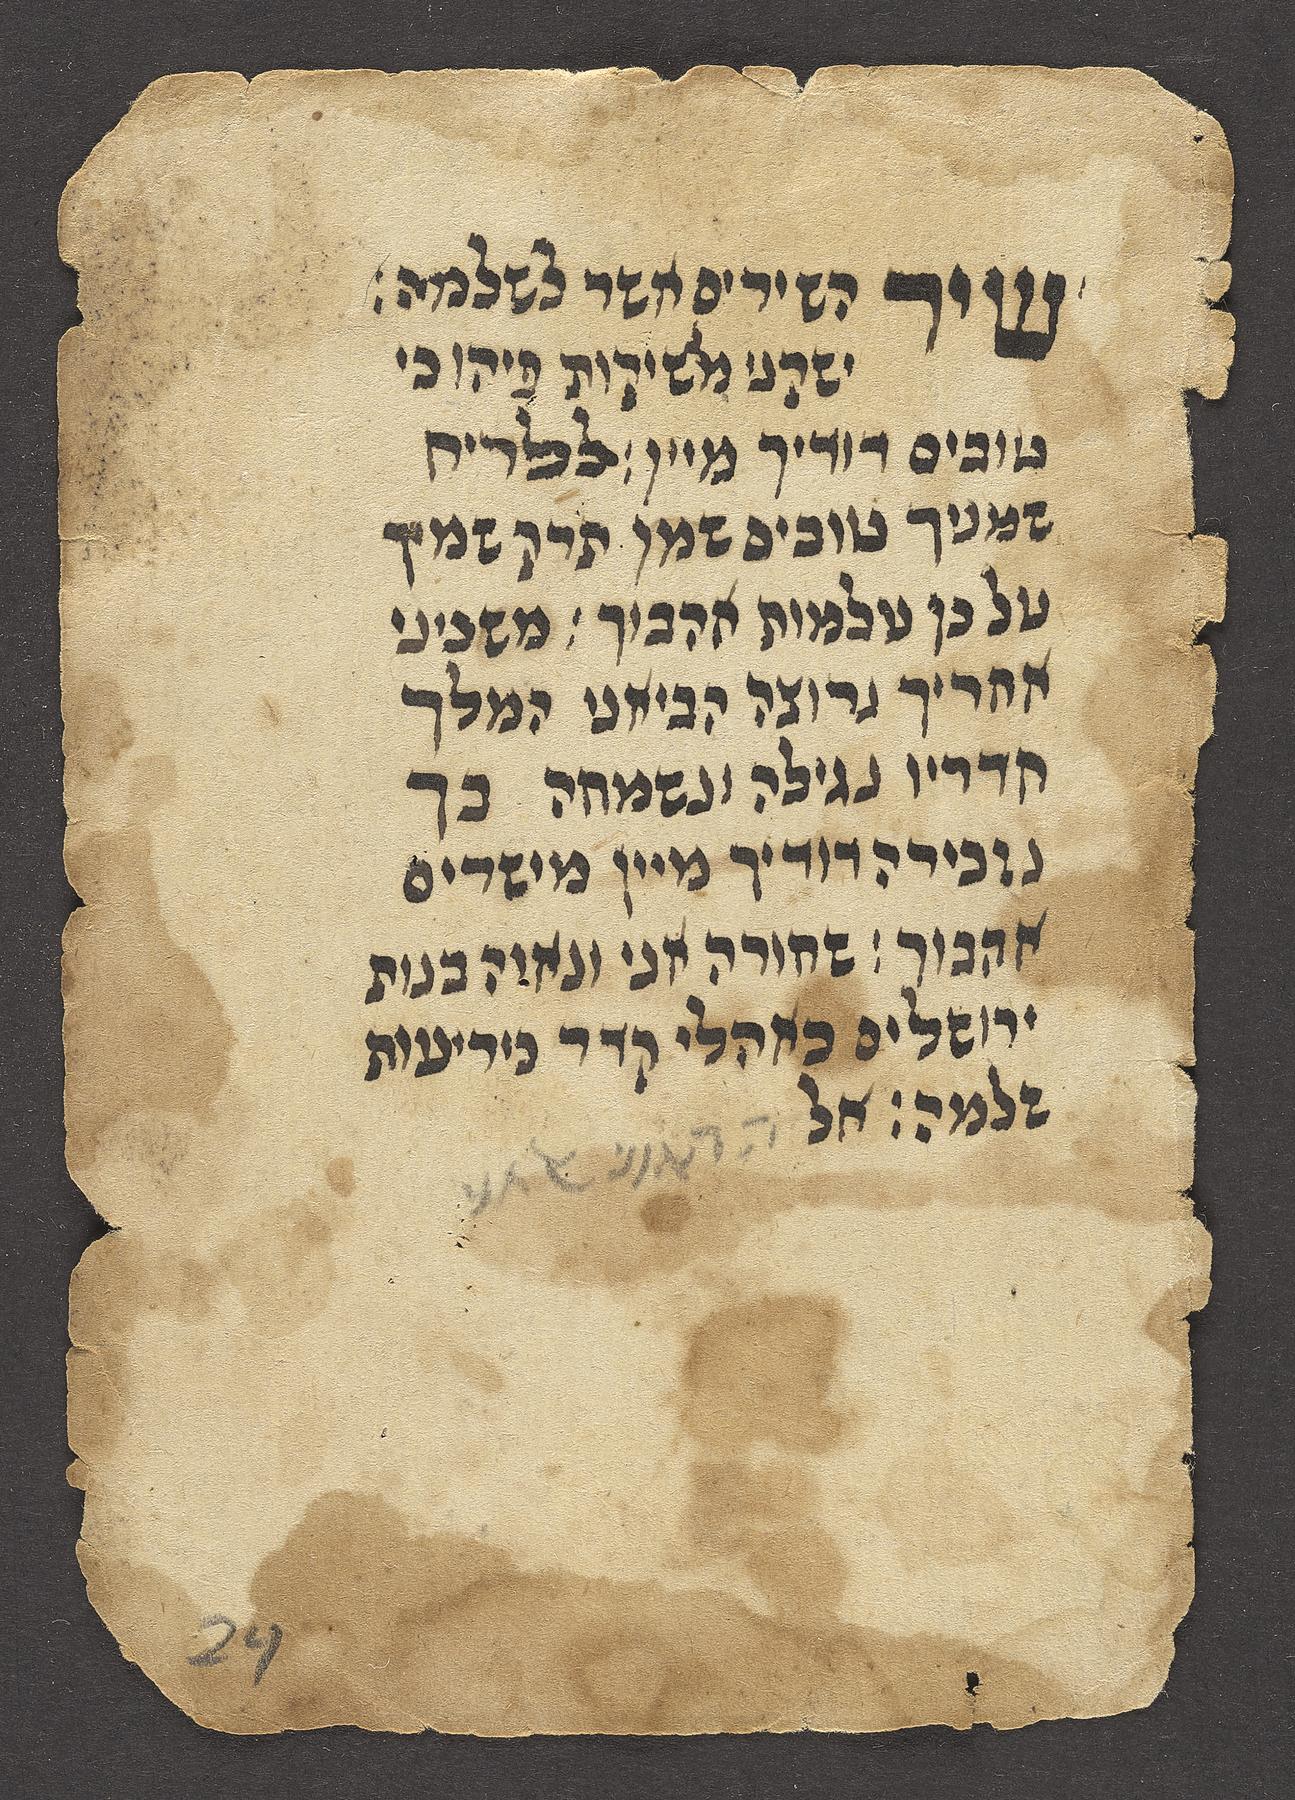 שיר השירים אשר לשלמה:
ישקני מנשיקות פיהו כי
טובים דודיך מיין: לכל ריח
שמניך טובים שמן תרק שמיך
על כן עלמות אהביך: משכיני
אחריך נרוצה הביאני המלך
חדריו נגילה ונשמחה בך
נזכירה דודיך מיין מישרים
אהבוך: שחורה אני ונאוה בנות
ירושלים כאהלי קדר כיריעות
שלמה: אל
24